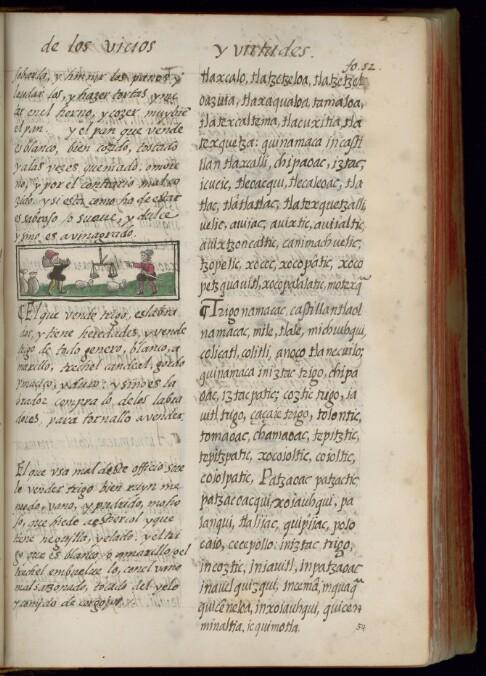 de los vicios y virtudes.
fo. 52.
saberla, y heñir los panes, y
leudar los, y hazer tortas, y me
ter en el horno, y cozer muy bie
el pan. y el pan que vende
es blanco, bien cozido, tostado
y alas vezes quemado, o more
no, y por el contrario mal co
zido: y si esta como ha de estar
es sabroso, o suaue, y dulce
y sino es avinagrado.
El que vende trigo, es labra
dor, y tiene heredades, y vende
trigo de todo genero, blanco, a
marillo, trechel candeal, gordo
y macizo, y duro: y sino es la
brador compra lo, de los labra
dores, para tornallo a vender.
El que vsa mal deste officio suele
le vender trigo bien ruyn me
nudo, vano, y podrido, moho
so, que hiede estiercol y que
tiene neguilla, y elado: y el tri
go que es blanco, o amarillo, o el
trechel embuelue lo, con el vano
mal sazonado, tocado del yelo
y comido de gorgojos.
tlaxcalo, tlatzetzeloa, tlatzetzel
oazuia, tlaxaqualoa, tamaloa,
tlatexcaltema, tlacuxitia, tla
texquetza: quinamaca in casti
llan tlaxcalli, chipaoac, iztac,
icucic, tlecacqui, tlecaleoac, tla
tlac, tlatlatlac, tlatotexquetzalli
uelic, auiac, auixtic, auiialtic,
auixtzoncaltic, canimachuelic,
tzopelic, xococ, xocopatic, xoco
petzquauitl, xocopalalatic, motexq
Trigo namacac, castillan tlaol
namacac, mile, tlale, michiuhqui,
colicatl, colitli, anoço tlanecuilo;
quinamaca in iztac trigo, chipa
oac, iztacpatic; coztic trigo, ia
uitl trigo, çacaie trigo, tolontic,
tomaoac, chamaoac, tepitztic,
tepitzpatic, xocoioltic, coioltic,
coiolpatic. Patzaoac patzactic
patzaccacqui, xoiauhqui, pa
lanqui, tlaliiac, quipiiac, polo
caio, cecepollo: in iztac trigo,
in coztic, in iauitl, in patzaoac
in auel quizqui, in cemā, in quaqua
quicēneloa, in xoiauhqui, quicen
minaltia, ic quimotla.
54